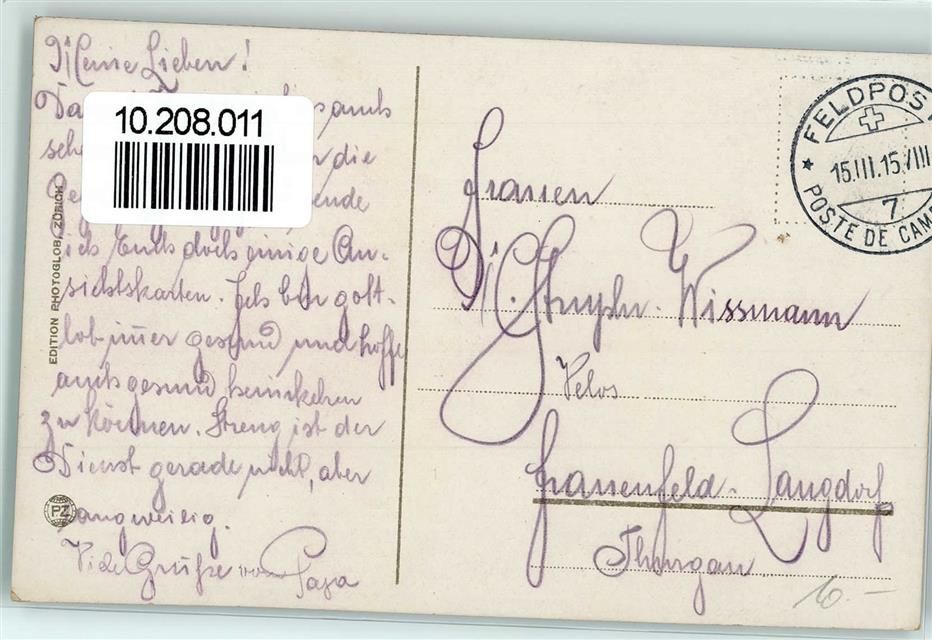 Meine Lieben!
10.208.011
die
ich Euch doch einige An-
sichtskarten. Ich bin gott-
lob immer gesund und hoffe
auch gesund heimkehren
zu können. Streng ist der
Dienst gerade nicht, aber
langweilig.
Viele Grüsse von Papa
EDITION PHOTOGLOB, ZÜRICH
PZ
FELDPOST
15.III.15.VIII
7
POSTE DE CAMP
Frauen
Wissmann
Velos
Frauenfeld-Langdorf
Thurgau.
10.-